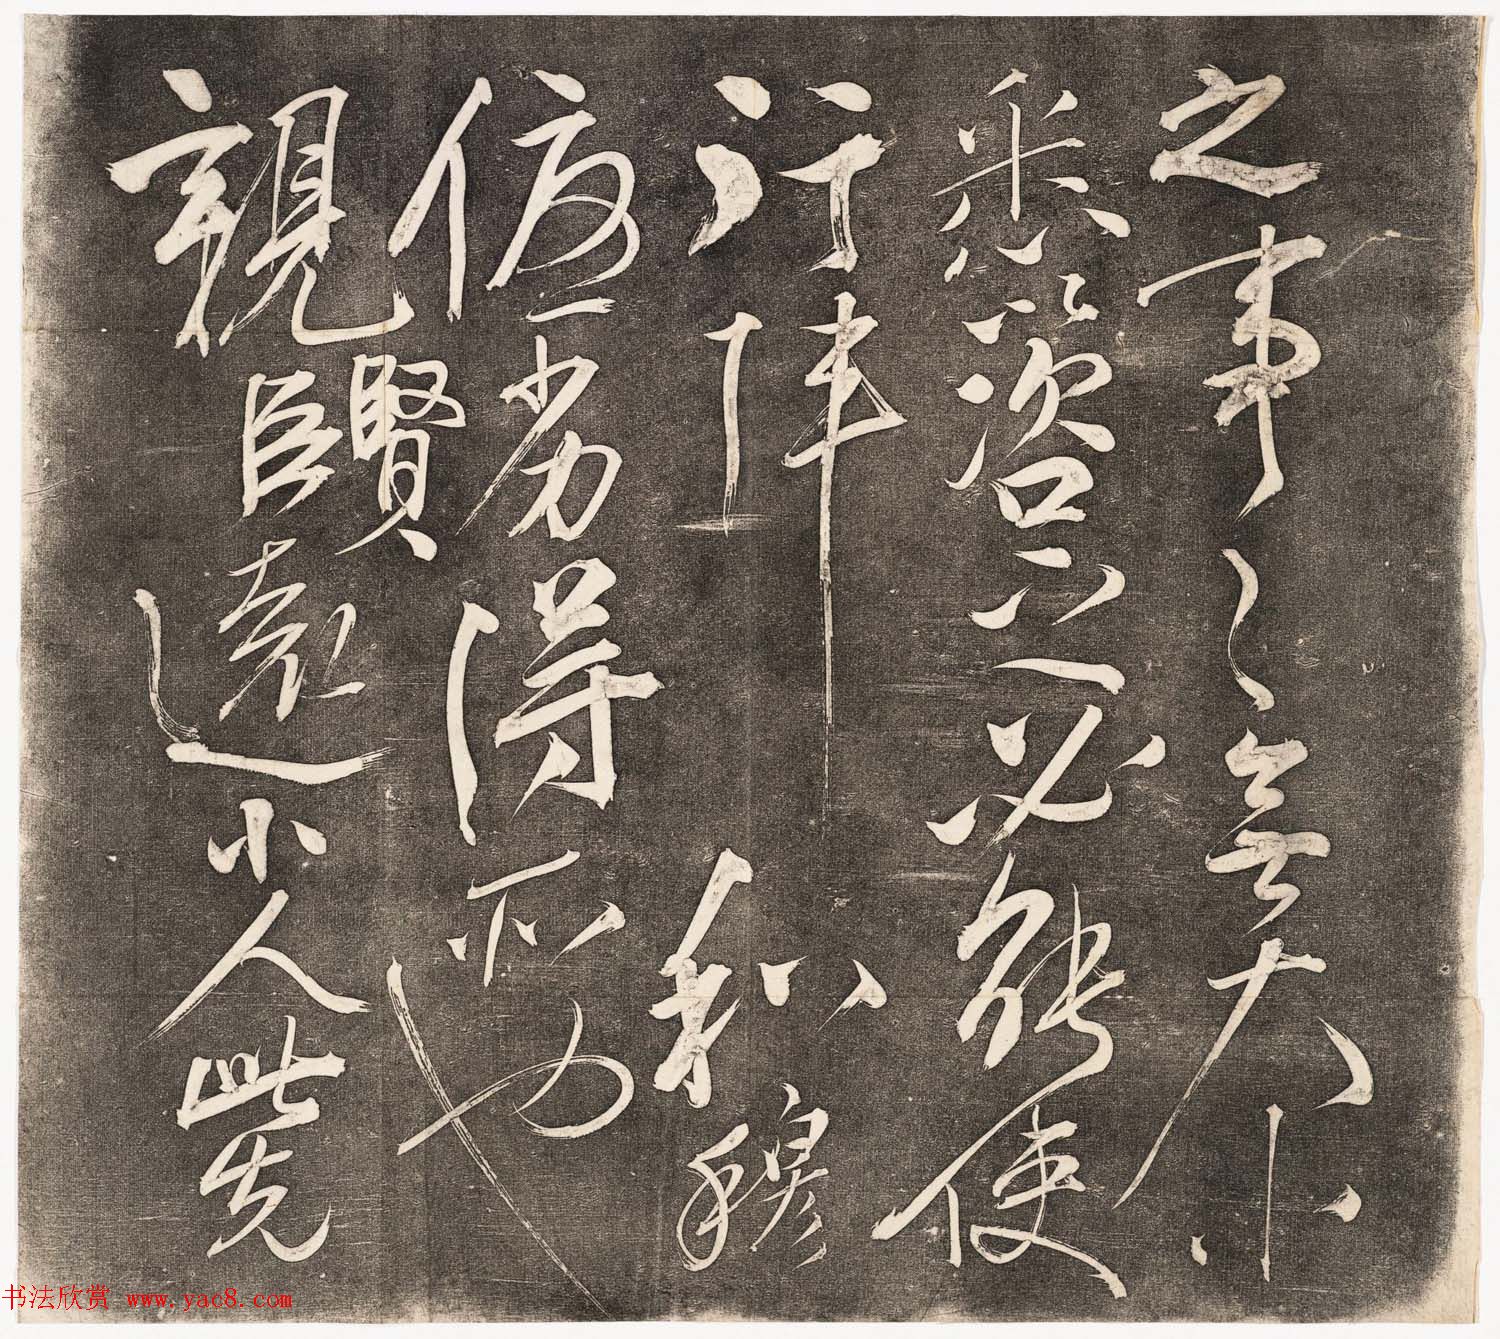 之事〻無大小
悉以咨之必能使
行陣和穆
優劣得所也
親賢臣遠小人此先
书法欣赏 www.yac8.com